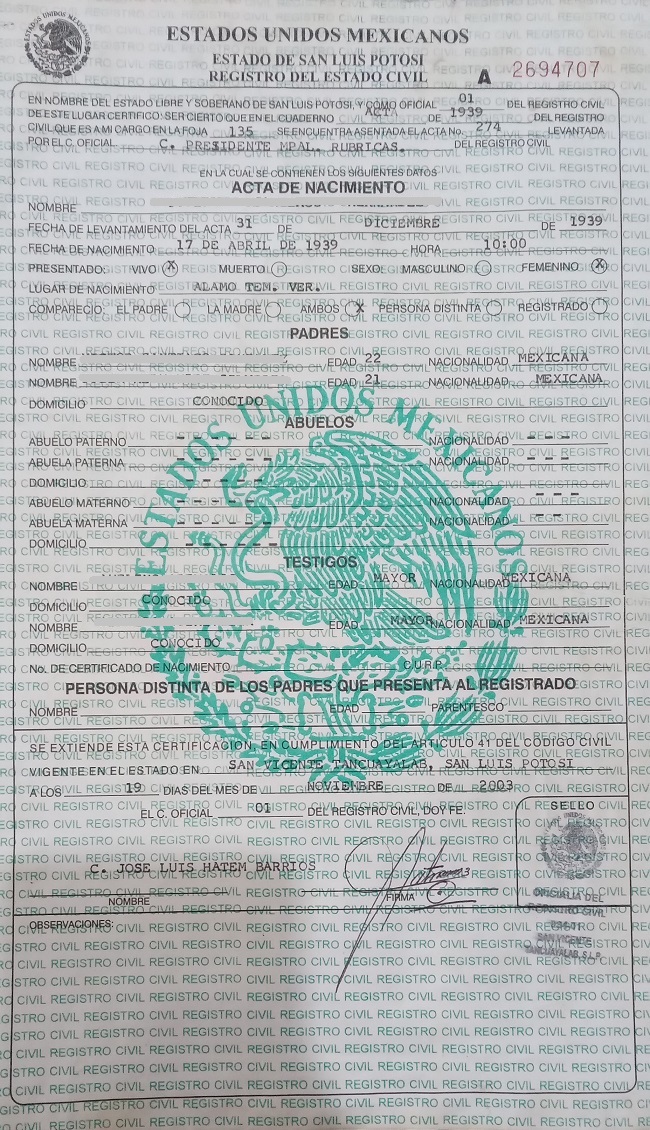 ESTADOS UNIDOS MEXICANOS
ESTADO DE SAN LUIS POTOSI
REGISTRO DEL ESTADO CIVIL
A 2694707
EN NOMBRE DEL ESTADO LIBRE Y SOBERANO DE SAN LUIS POTOSI, Y COMO OFICIAL 01 DEL REGISTRO CIVIL
DE ESTE LUGAR CERTIFICO: SER CIERTO QUE EN EL CUADERNO ACTA DE 1939 DEL REGISTRO
CIVIL QUE ES A MI CARGO EN LA FOJA 135 SE ENCUENTRA ASENTADA EL ACTA No. 274 LEVANTADA
POR EL C. OFICIAL C. PRESIDENTE MPAL. RUBRICAS. DEL REGISTRO CIVIL
EN LA CUAL SE CONTIENEN LOS SIGUIENTES DATOS
ACTA DE NACIMIENTO
NOMBRE
FECHA DE LEVANTAMIENTO DEL ACTA 31 DE DICIEMBRE DE 1939
FECHA DE NACIMIENTO 17 DE ABRIL DE 1939 HORA 10:00
PRESENTADO: VIVO X MUERTO SEXO: MASCULINO FEMENINO X
LUGAR DE NACIMIENTO ALAMO TEM. VER.
COMPARECIO: EL PADRE LA MADRE AMBOS X PERSONA DISTINTA REGISTRADO
PADRES
NOMBRE EDAD 22 NACIONALIDAD MEXICANA
NOMBRE EDAD 21 NACIONALIDAD MEXICANA
DOMICILIO CONOCIDO
ABUELOS
ABUELO PATERNO - - - - - - NACIONALIDAD - - -
ABUELA PATERNA - - - - - - NACIONALIDAD - - -
DOMICILIO - - - -
ABUELO MATERNO - - - - - - NACIONALIDAD - - -
ABUELA MATERNA - - - - - - NACIONALIDAD - - -
DOMICILIO - - - - -
TESTIGOS
NOMBRE EDAD MAYOR NACIONALIDAD MEXICANA
DOMICILIO CONOCIDO
NOMBRE EDAD MAYOR NACIONALIDAD MEXICANA
DOMICILIO CONOCIDO
No. DE CERTIFICADO DE NACIMIENTO C.U.R.P.
PERSONA DISTINTA DE LOS PADRES QUE PRESENTA AL REGISTRADO
NOMBRE EDAD PARENTESCO
SE EXTIENDE ESTA CERTIFICACION, EN CUMPLIMIENTO DEL ARTICULO 41 DEL CODIGO CIVIL
VIGENTE EN EL ESTADO EN SAN VICENTE TANCUAYALAB, SAN LUIS POTOSI
A LOS 19 DIAS DEL MES DE NOVIEMBRE DE 2003
EL C. OFICIAL 01 DEL REGISTRO CIVIL, DOY FE.
SELLO
C. JOSE LUIS HATEM BARRIOS
NOMBRE FIRMA
OFICIALIA DEL
REGISTRO CIVIL
SAN VICENTE
TANCUAYALAB, S.L.P.
OBSERVACIONES: